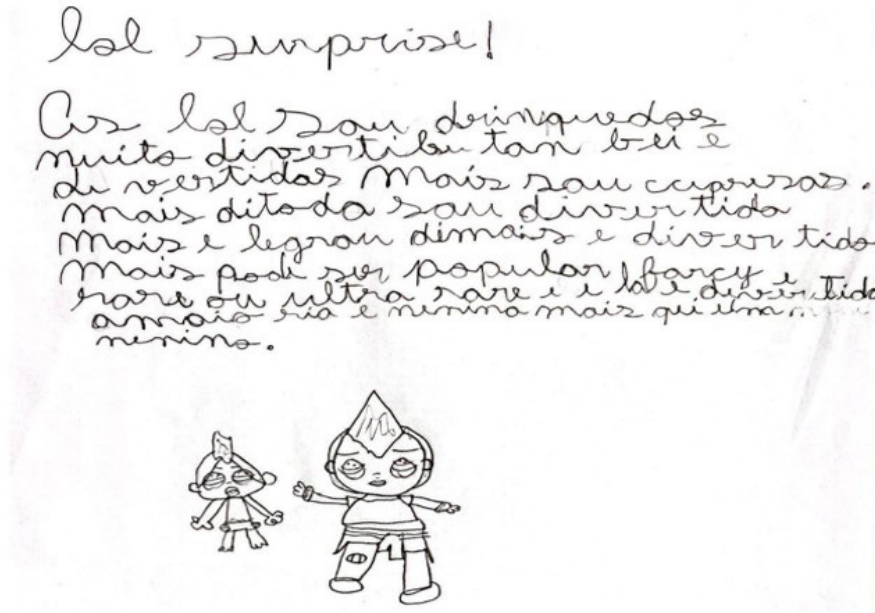 lol surprise!
As lol sau drinquedos
muito divertibu tan bei e
di vertidas mais sau cupusas.
mais ditoda sau divirtida
mais e legrau dimais e diver tido
mais podi ser popular, farcy i
rari ou ultra rare i i la i divirtida
amaio ria e nenina mais qui um
nenino.